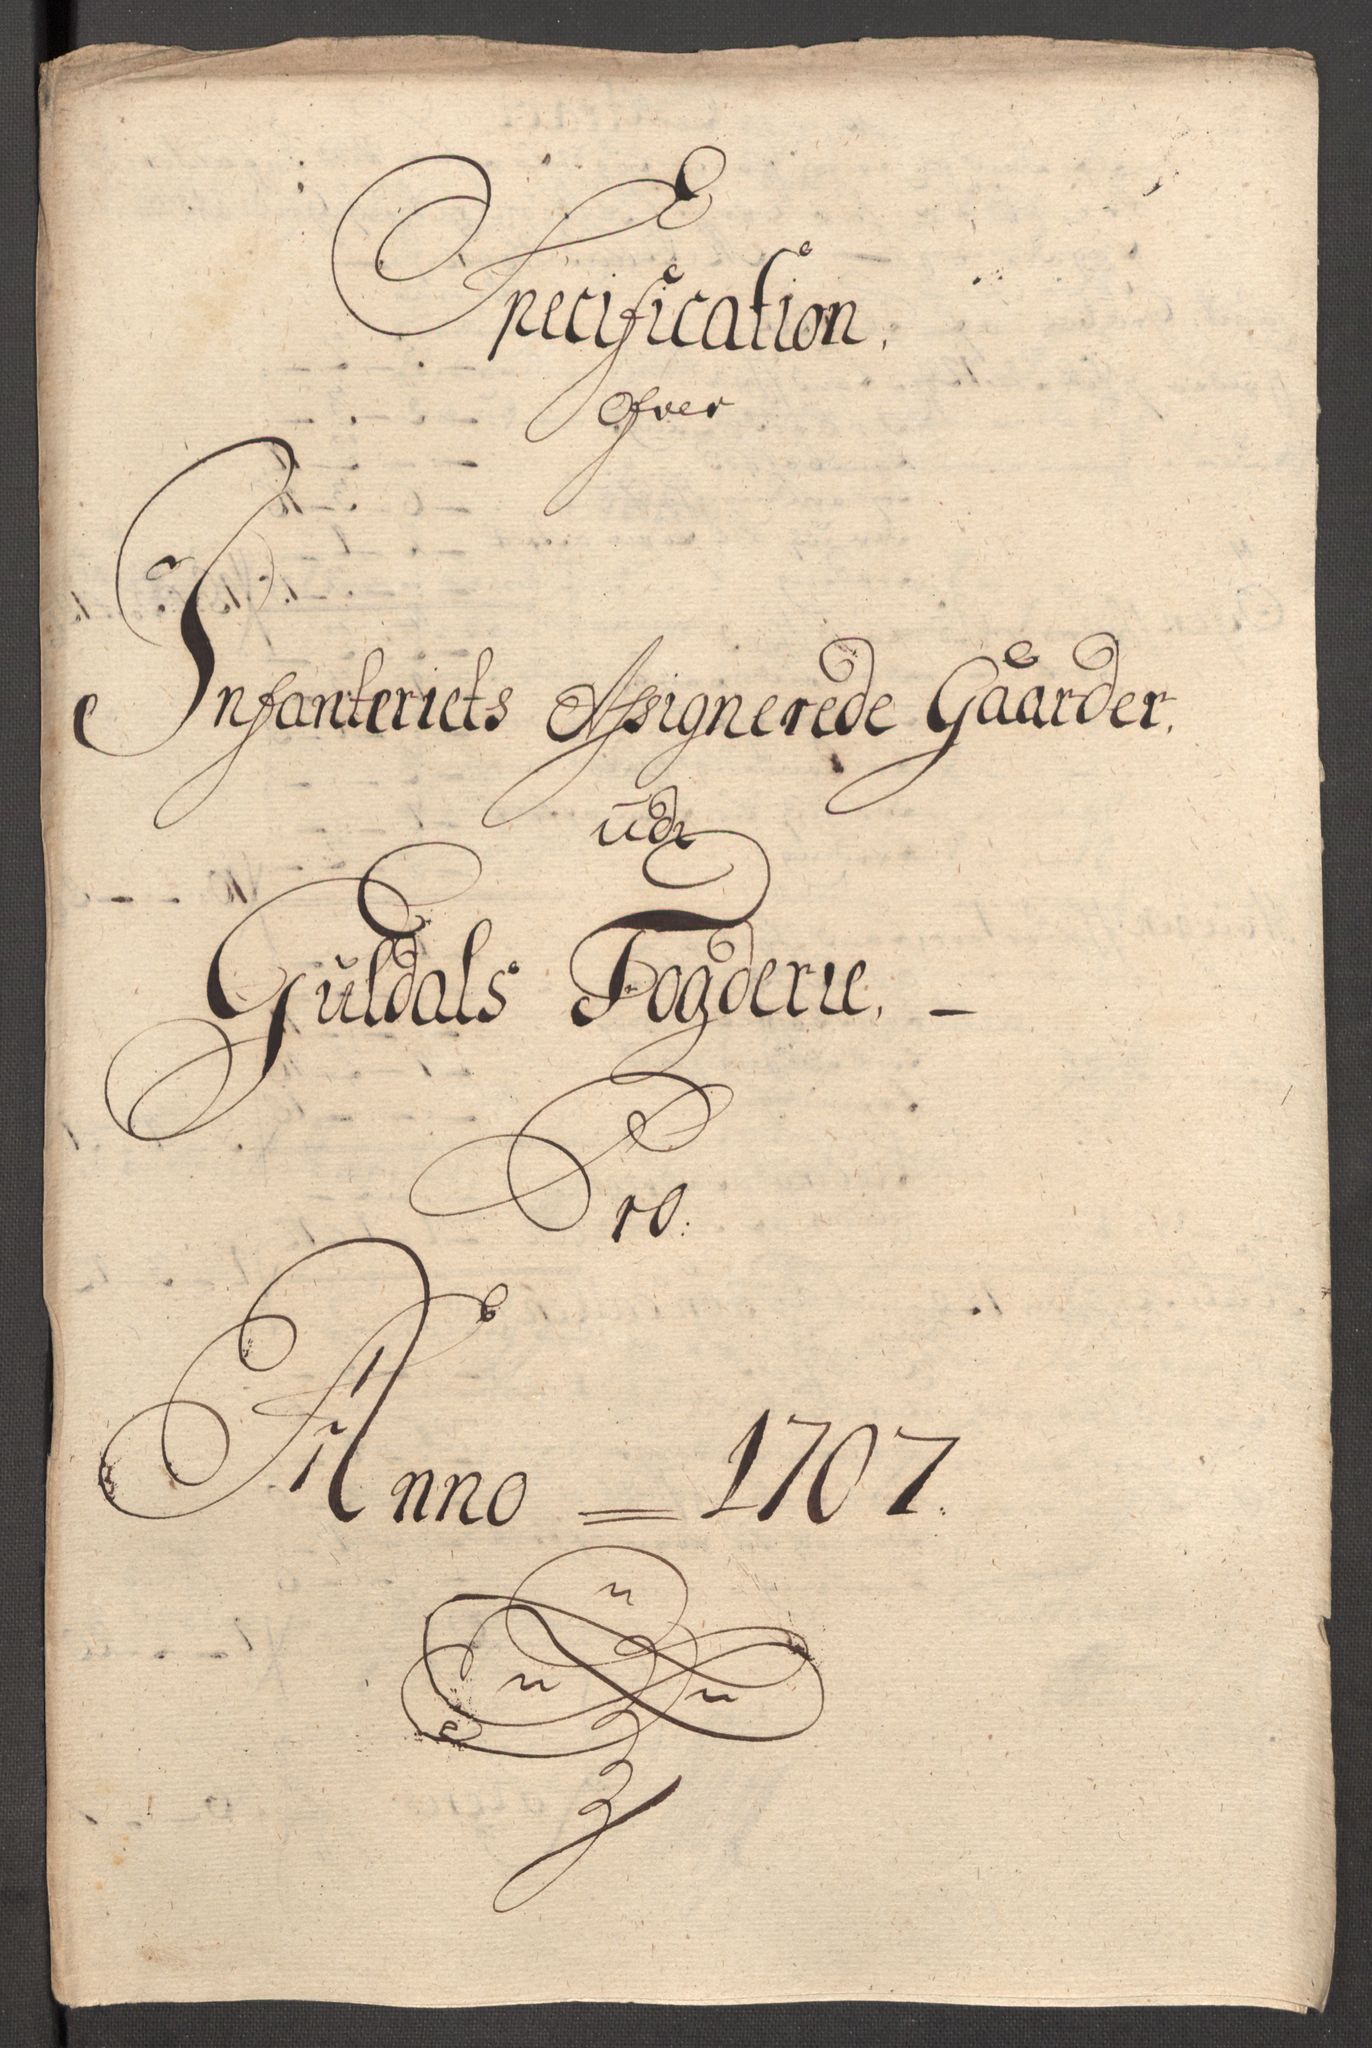 Specification.
Ofver
Infanteriets Assignerede Gaarder.
udi
Guldals Fogderie. –
Pro.
Anno = 1707.